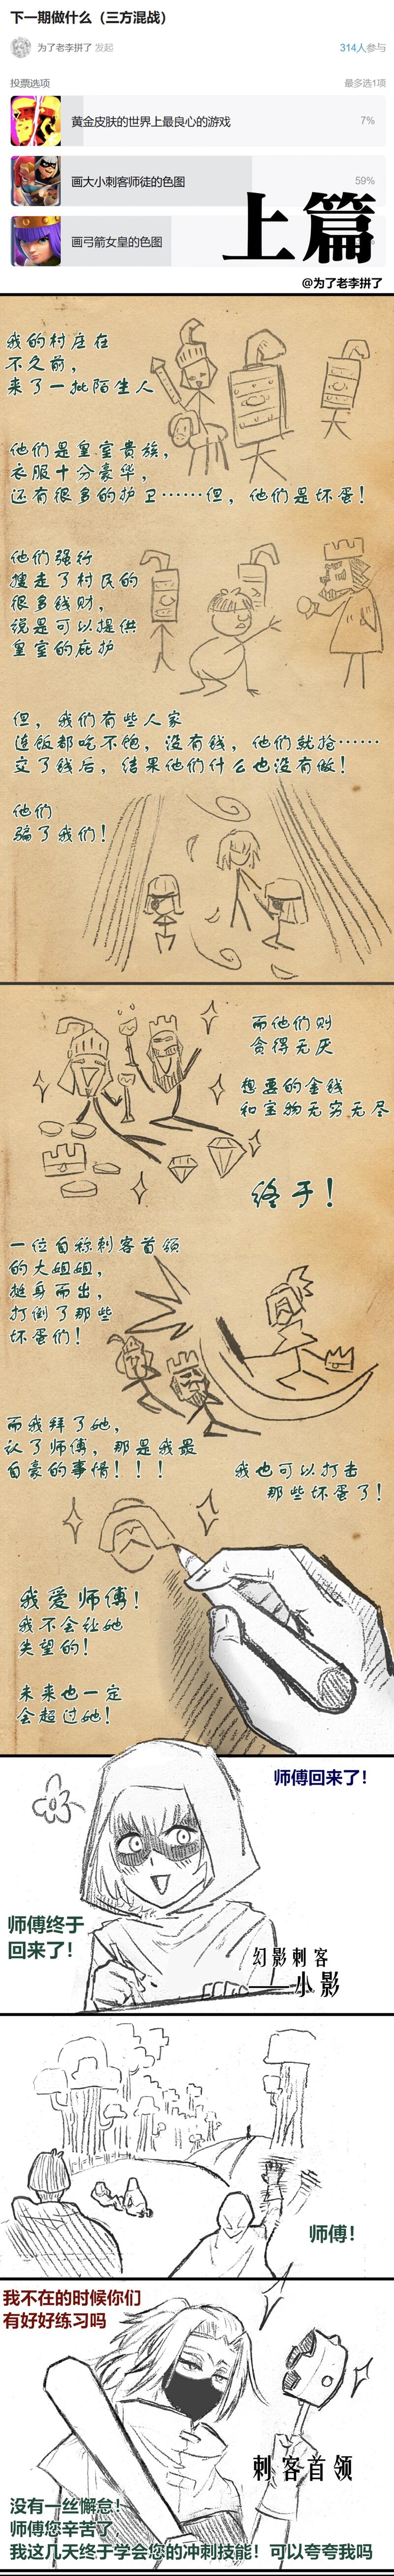 下一期做什么（三方混战）
为了老李拼了 发起
314人参与
投票选项
最多选1项
黄金皮肤的世界上最良心的游戏
7%
画大小刺客师徒的色图
59%
画弓箭女皇的色图
上篇
@为了老李拼了
我的村庄在
不久前，
来了一批陌生人
他们是皇室贵族，
衣服十分豪华，
还有很多的护卫……但，他们是坏蛋！
他们强行
搜走了村民的
很多钱财，
说是可以提供
皇室的庇护
但，我们有些人家
连饭都吃不饱，没有钱，他们就抢……
交了钱后，结果他们什么也没有做！
他们
骗了我们！
而他们则
贪得无厌
想要的金钱
和宝物无穷无尽
终于！
一位自称刺客首领
的大姐姐，
挺身而出，
打倒了那些
坏蛋们！
而我拜了她，
认了师傅，那是我最
自豪的事情！！！
我也可以打击
那些坏蛋了！
我爱师傅！
我不会让她
失望的！
未来也一定
会超过她！
师傅回来了！
师傅终于
回来了！
幻影刺客
——小影
师傅！
我不在的时候你们
有好好练习吗
刺客首领
没有一丝懈怠！
师傅您辛苦了
我这几天终于学会您的冲刺技能！可以夸夸我吗